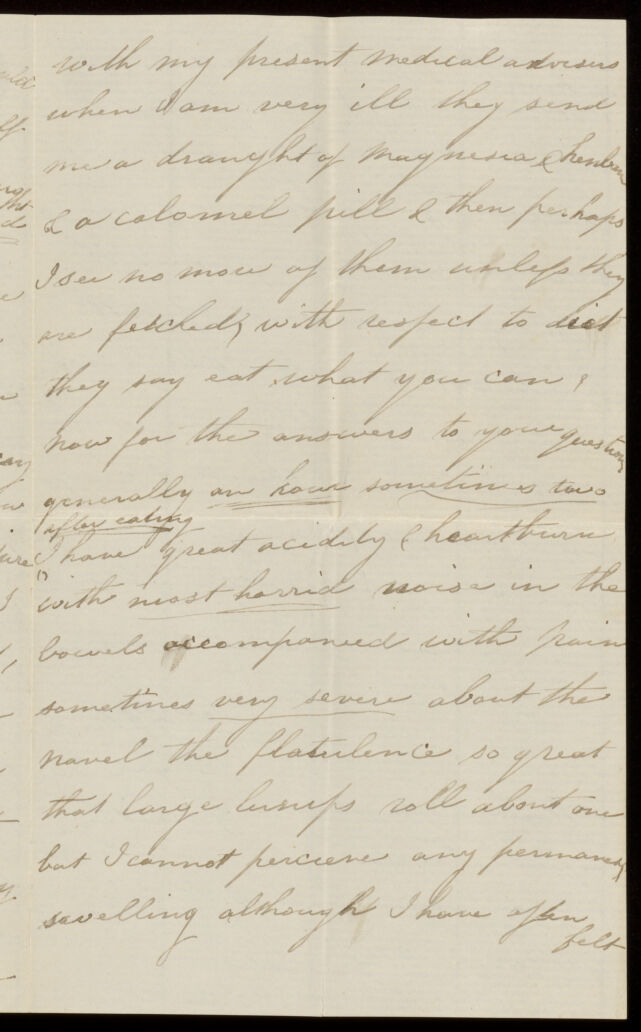 with my present medical advisers
when I am very ill they send
me a draught of Magnesia & henbane
& a calomel pill & then perhaps
I see no more of them unless they
are fetched; with respect to diet
they say eat what you can;
now for the answers to your questions,
generally an hour sometimes two
after eating
I have great acidity & heartburn
with most horrid noise in the
bowels accompanied with pain
sometimes very severe about the
navel the flatulence so great
that large lumps roll about one
but I cannot percieve any permanent
swelling although I have often
felt